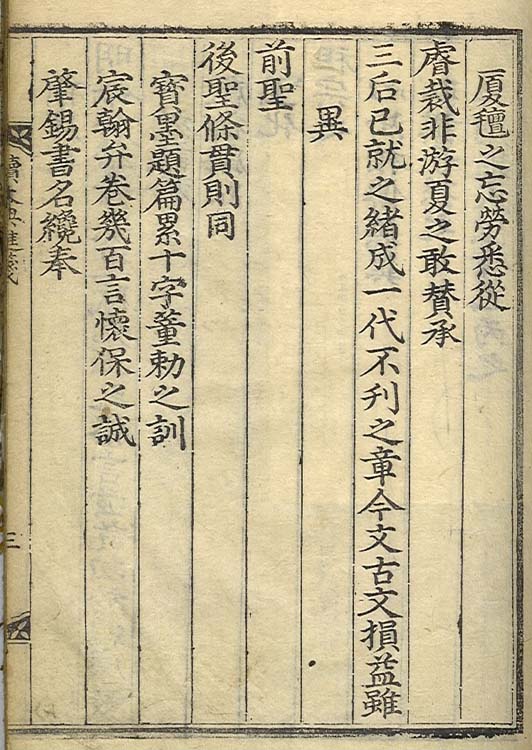 廈氊之忘勞悉從
睿裁非游夏之敢賛承
三后已就之緖成一代不刋之章今文古文損益雖
異
前聖
後聖條貫則同
寳墨題篇累十字董勅之訓
宸翰弁卷幾百言懷保之誠
肇錫書名纔奉
續大典進箋
三